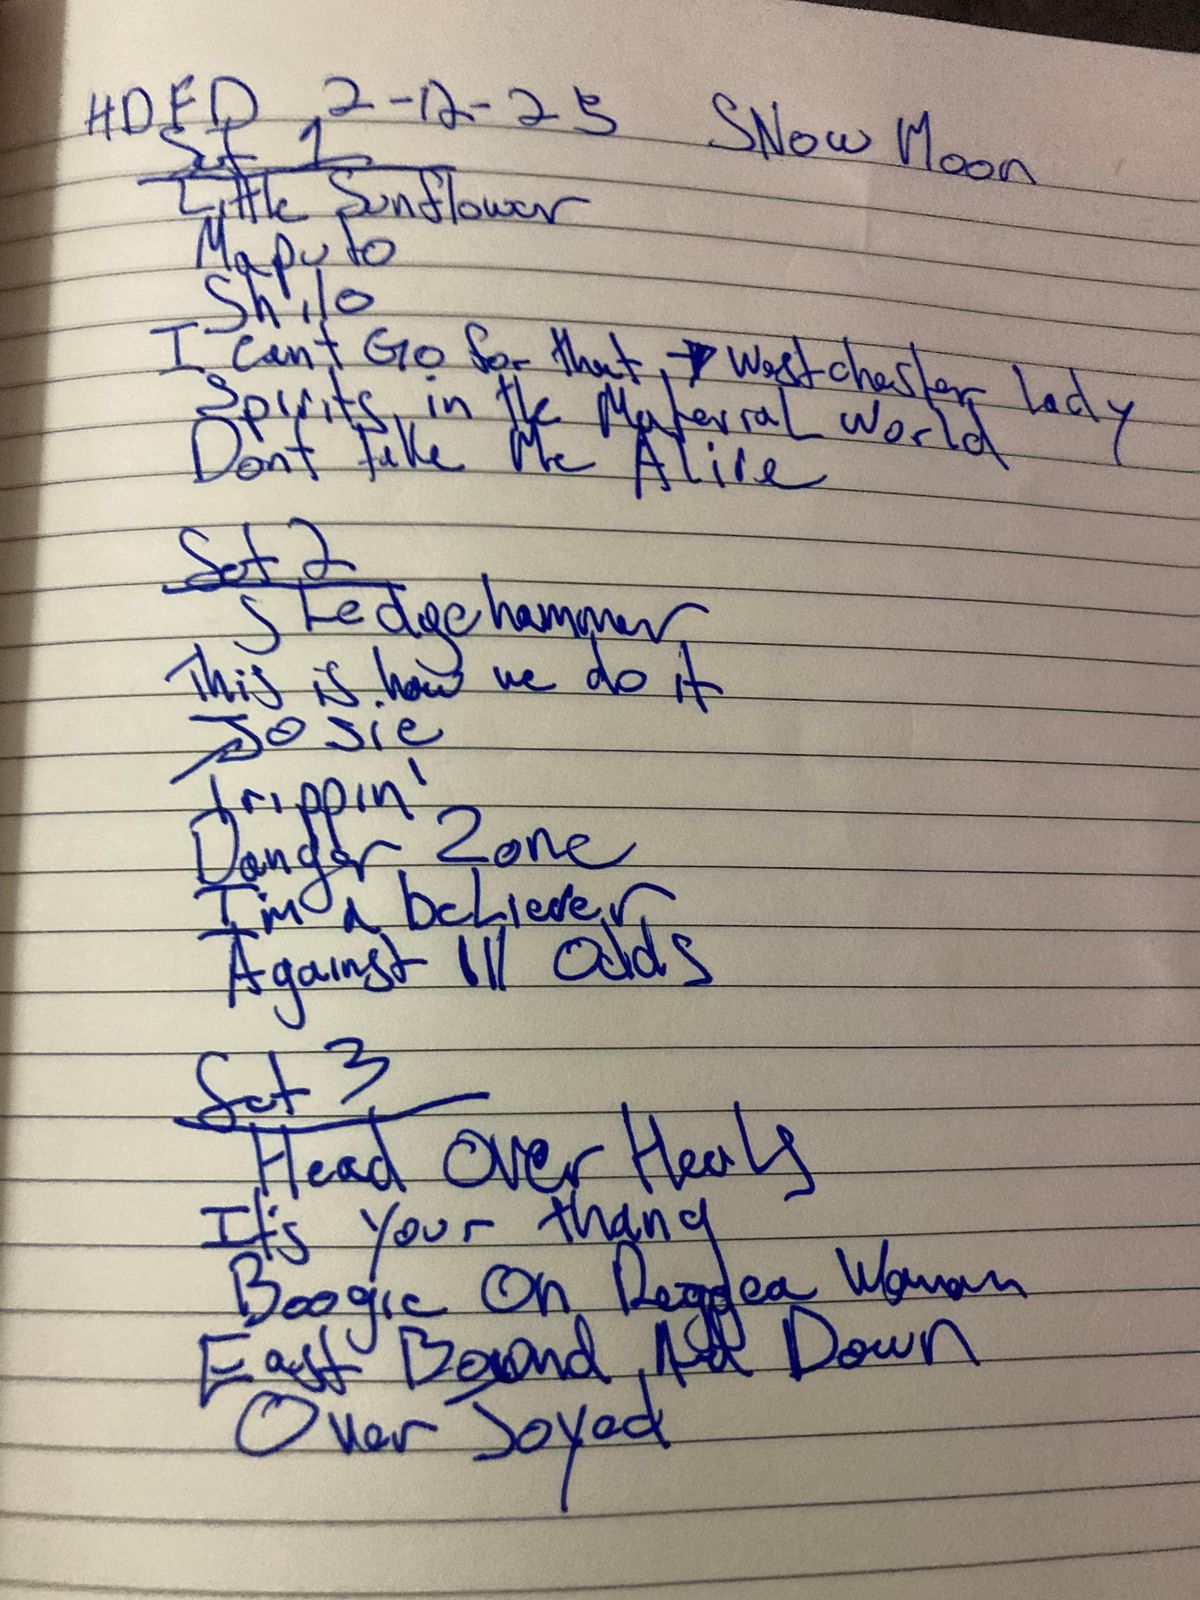 HDFD 2-12-25 SNow Moon
Set 1
Little Sunflower
Maputo
Shilo
I Can't Go for that → Westchester Lady
Spirits in the Material World
Dont take Me Alive
Set 2
Sledgehammer
This is how we do it
Josie
Trippin'
Danger Zone
I'm a believer
Against All Odds
Set 3
Head Over Heals
It's Your thang
Boogie On Reggea Woman
East Bound And Down
Over Joyed